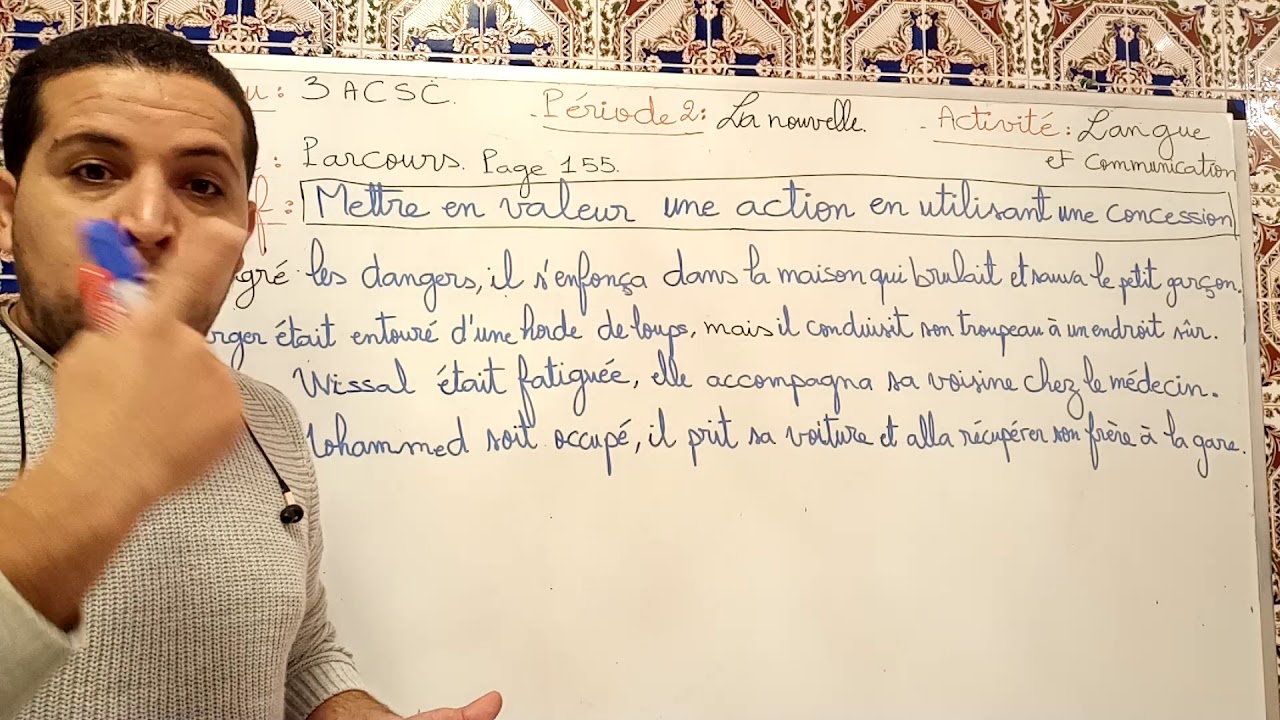 u : 3 ACSC. - Période 2 : La nouvelle. - Activité : Langue
: Parcours. Page 155. et communication
f : Mettre en valeur une action en utilisant une concession
gré les dangers, il s'enfonça dans la maison qui brulait et sauva le petit garçon.
rger était entouré d'une horde de loups, mais il conduisit son troupeau à un endroit sûr.
Wissal était fatiguée, elle accompagna sa voisine chez le médecin.
Mohammed soit occupé, il prit sa voiture et alla récupérer son frère à la gare.